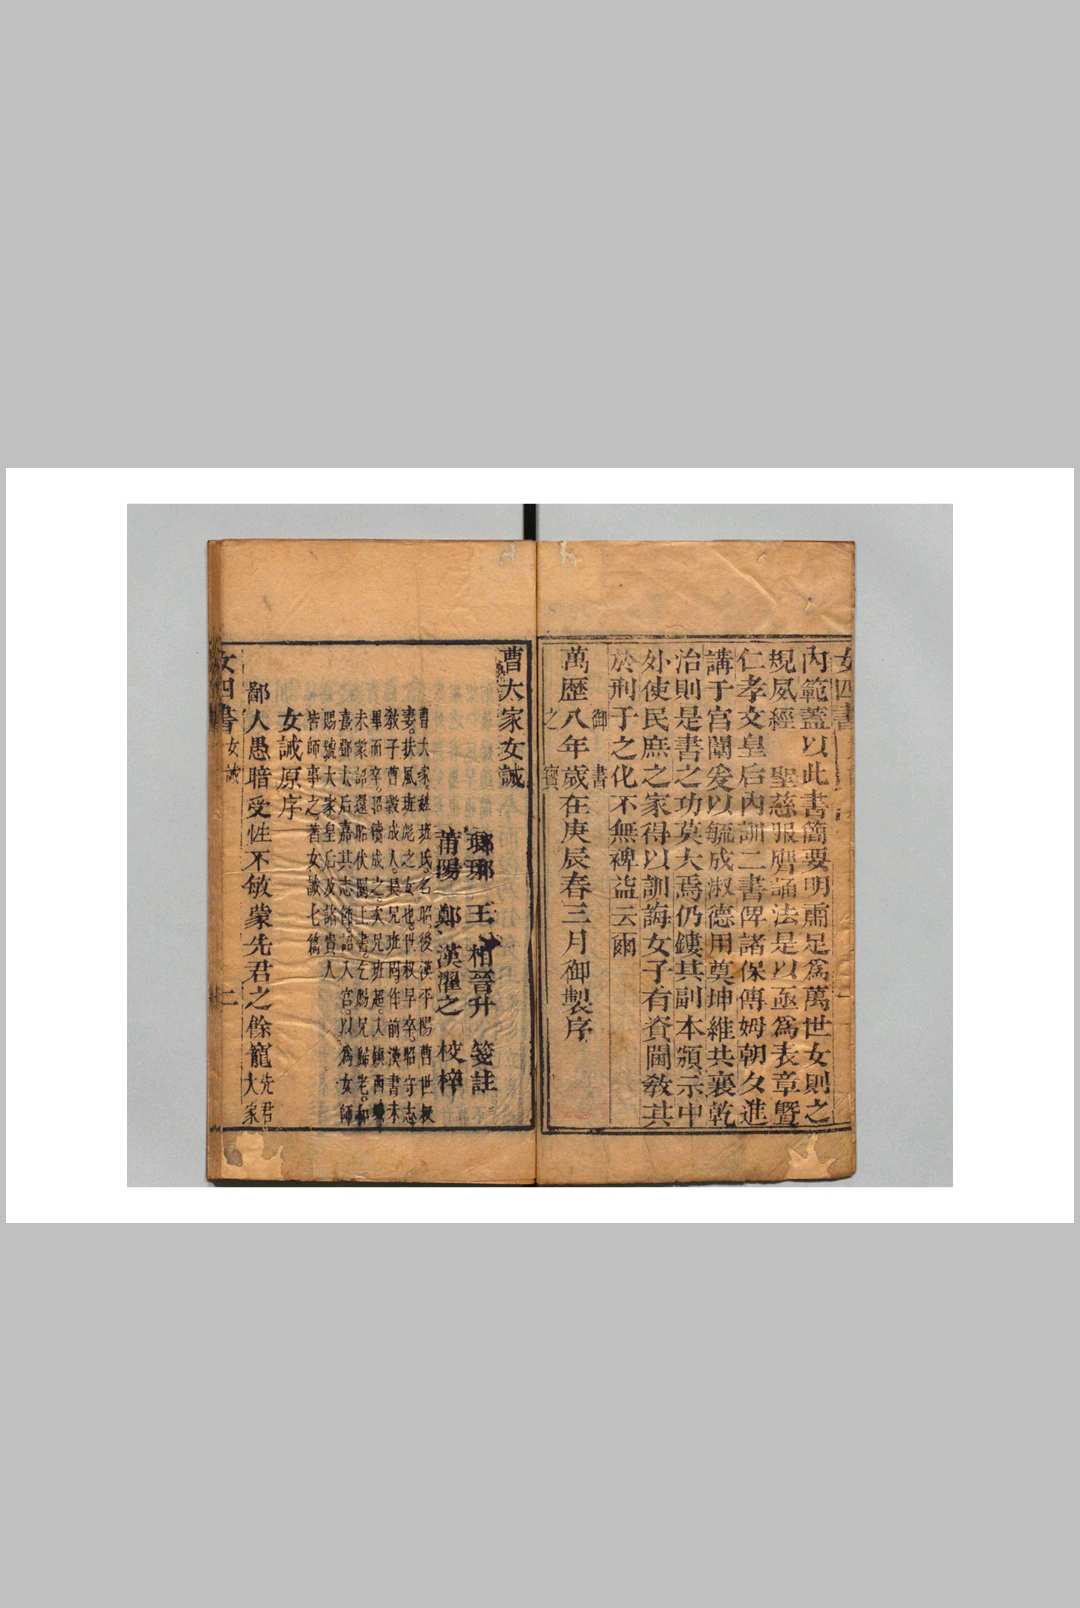 女四書
內範蓋以此書簡要明肅足爲萬世女則之
規风經 聖慈服膺誦法是以亟爲表章曁
仁孝文皇后內訓二書俾諸保傅姆朝夕進
講于宮闈爰以毓成淑德用奠坤維共襄乾
治則是書之功莫大焉仍鏤其副本頒示中
外使民庶之家得以訓誨女子有資閫教共
於刑于之化不無裨益云爾
御書
萬歷八年歲在庚辰春三月御製序
之寶
曹大家女誡
瑯琊 王 相晉升 箋註
莆陽 鄭 漢濯之 校梓
曹大家姓班氏名昭後漢平陽曹世叔
妻扶風班彪之女也世叔早卒昭守志
教子曹穀成人長兄班固作前漢書未
畢而卒昭續成之次兄班超久鎮西域
未蒙詔還昭伏闕上書乞賜兄歸老和
熹鄧太后嘉其志節詔入宮以爲女師
賜號大家皇后及諸貴人
皆師事之著女誡七篇
女誡原序
鄙人愚暗受性不敏蒙先君之餘寵先君
大家
女四書 女誡 二